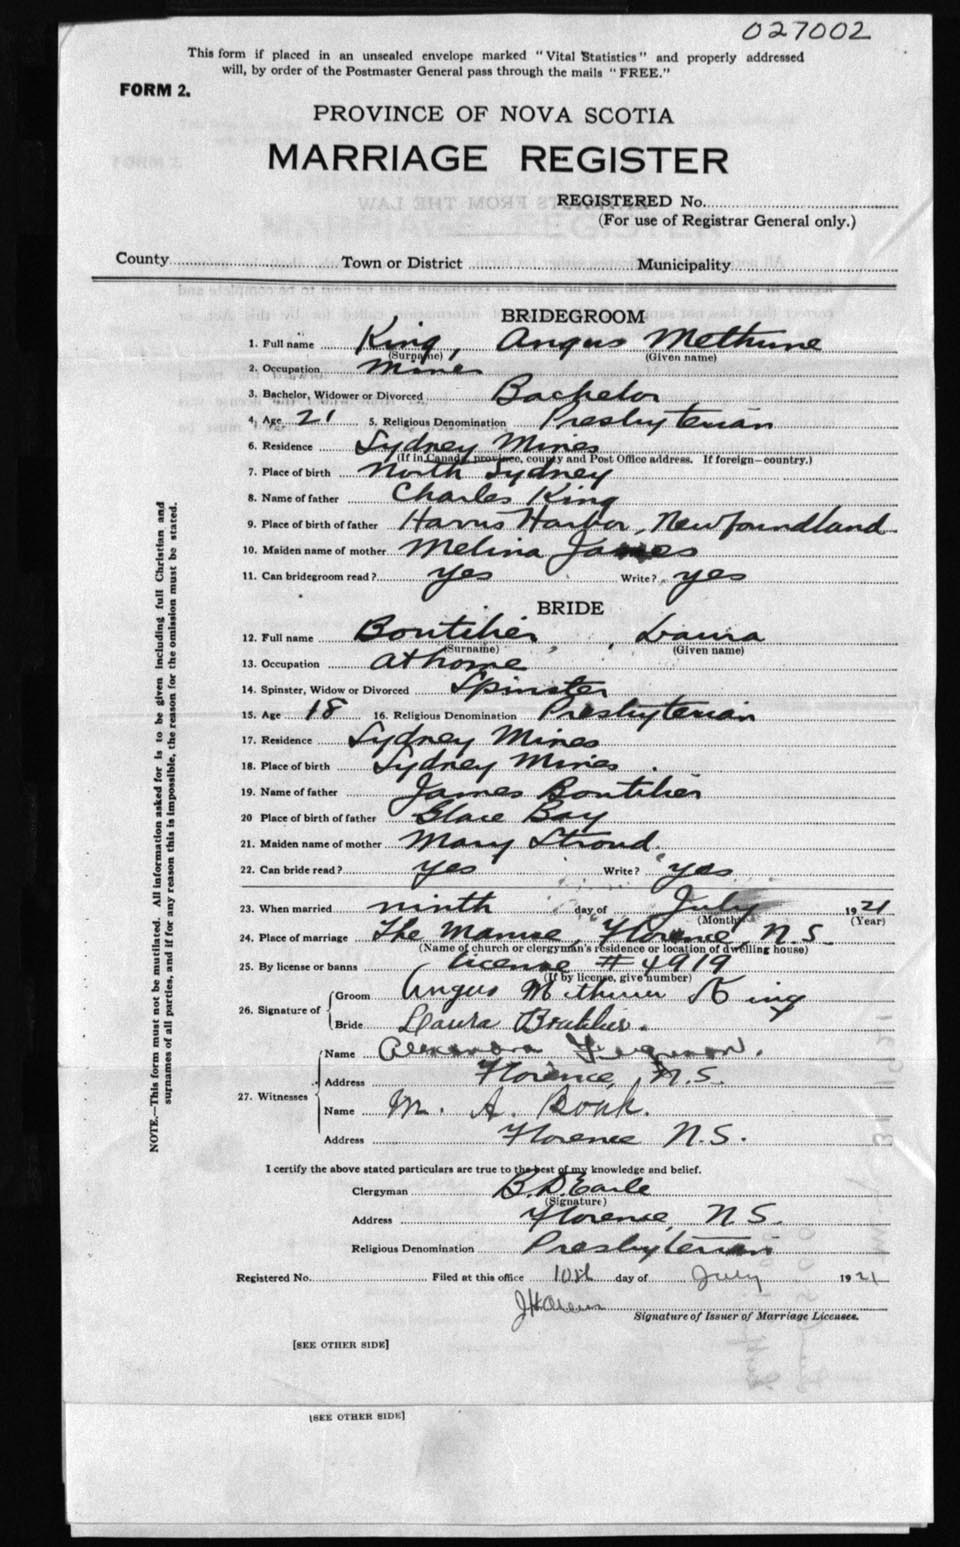 027002
This form if placed in an unsealed envelope marked "Vital Statistics" and properly addressed
will, by order of the Postmaster General pass through the mails "FREE."
FORM 2.
PROVINCE OF NOVA SCOTIA
MARRIAGE REGISTER
REGISTERED No.
(For use of Registrar General only.)
County Town or District Municipality
BRIDEGROOM
1. Full name King, Angus Methune
(Surname) (Given name)
2. Occupation Miner
3. Bachelor, Widower or Divorced Bachelor
4. Age 21 5. Religious Denomination Presbyterian
6. Residence Sydney Mines
(If in Canada, province, county and Post Office address. If foreign—country.)
7. Place of birth North Sydney
8. Name of father Charles King
9. Place of birth of father Harbor, Newfoundland
10. Maiden name of mother Melina James
11. Can bridegroom read? yes Write? yes
BRIDE
12. Full name Boutilier, Laura
(Surname) (Given name)
13. Occupation at home
14. Spinster, Widow or Divorced Spinster
15. Age 18 16. Religious Denomination Presbyterian
17. Residence Sydney Mines
18. Place of birth Sydney Mines.
19. Name of father James Boutilier
20 Place of birth of father Glace Bay
21. Maiden name of mother Mary Stroud.
22. Can bride read? yes Write? yes
23. When married ninth day of July 1921
(Month) (Year)
24. Place of marriage The Manse, Florence, N.S.
(Name of church or clergyman's residence or location of dwelling house)
25. By license or banns license # 4919
(If by license, give number)
26. Signature of Groom Angus King
Bride Laura Boutilier.
27. Witnesses Name Ferguson.
Address Florence, N.S.
Name M. A. Bonk.
Address Florence N.S.
I certify the above stated particulars are true to the best of my knowledge and belief.
Clergyman B. D. Earle
(Signature)
Address Florence, N.S.
Religious Denomination Presbyterian
Registered No. Filed at this office 10th day of July 1921
Signature of Issuer of Marriage Licenses.
[SEE OTHER SIDE]
[SEE OTHER SIDE]
NOTE.—This form must not be mutilated. All information asked for is to be given including full Christian and
surnames of all parties, and if for any reason this is impossible, the reason for the omission must be stated.